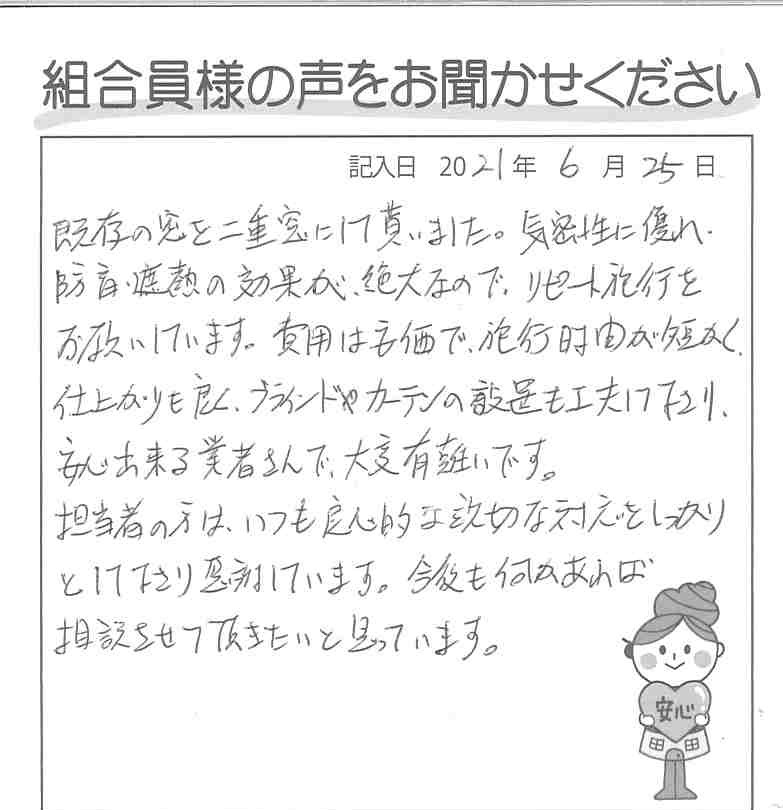 組合員様の声をお聞かせください
記入日 2021年 6月 25日
既存の窓を二重窓にして貰いました。気密性に優れ、
防音・遮熱の効果が、絶大なので、リピート施行を
お願いしています。費用は安価で、施行時間が短かく、
仕上がりも良く、ブラインドやカーテンの設置も工夫して下さり、
安心出来る業者さんで、大変有難いです。
担当者の方は、いつも良心的な親切な対応をしっかり
として下さり感謝しています。今後も何かあれば
相談させて頂きたいと思っています。
安心